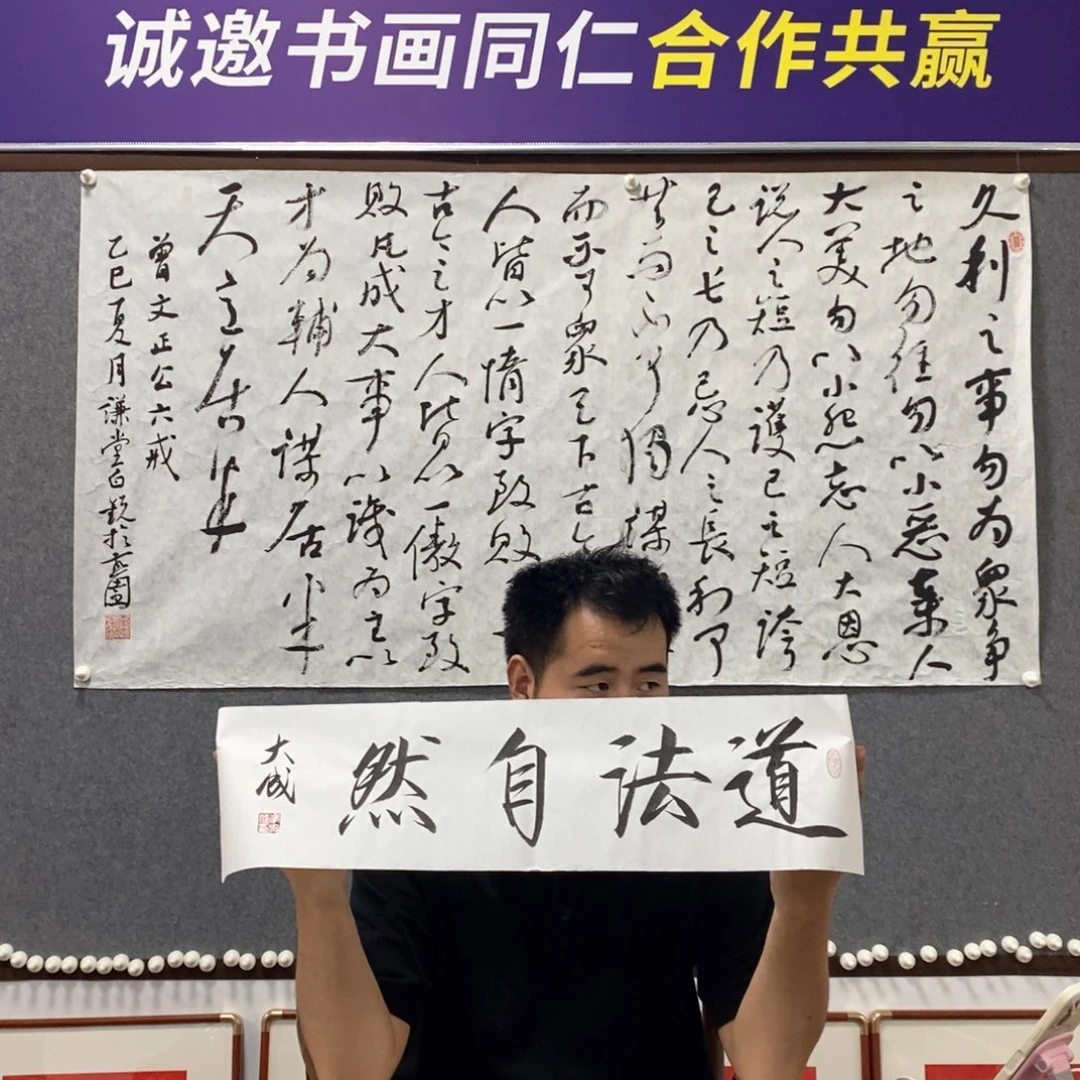 诚邀书画同仁合作共赢
久利之事勿为眾争
之地勿往勿以小恶棄人
大美勿以小怨忘人大恩
说人之短乃護己之短誇
己之长乃忌人之長利可
共而不可獨謀
而不可眾天下古今
人皆以一惰字致敗
古今之才人皆以一傲字致
敗凡成大事以識为主以
才为輔人謀居半
天意居半
曾文正公六戒
乙巳夏月謙堂白
道法自然
大成